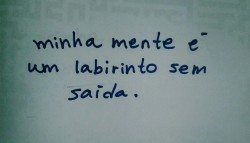 minha mente é
um labirinto sem
saída.